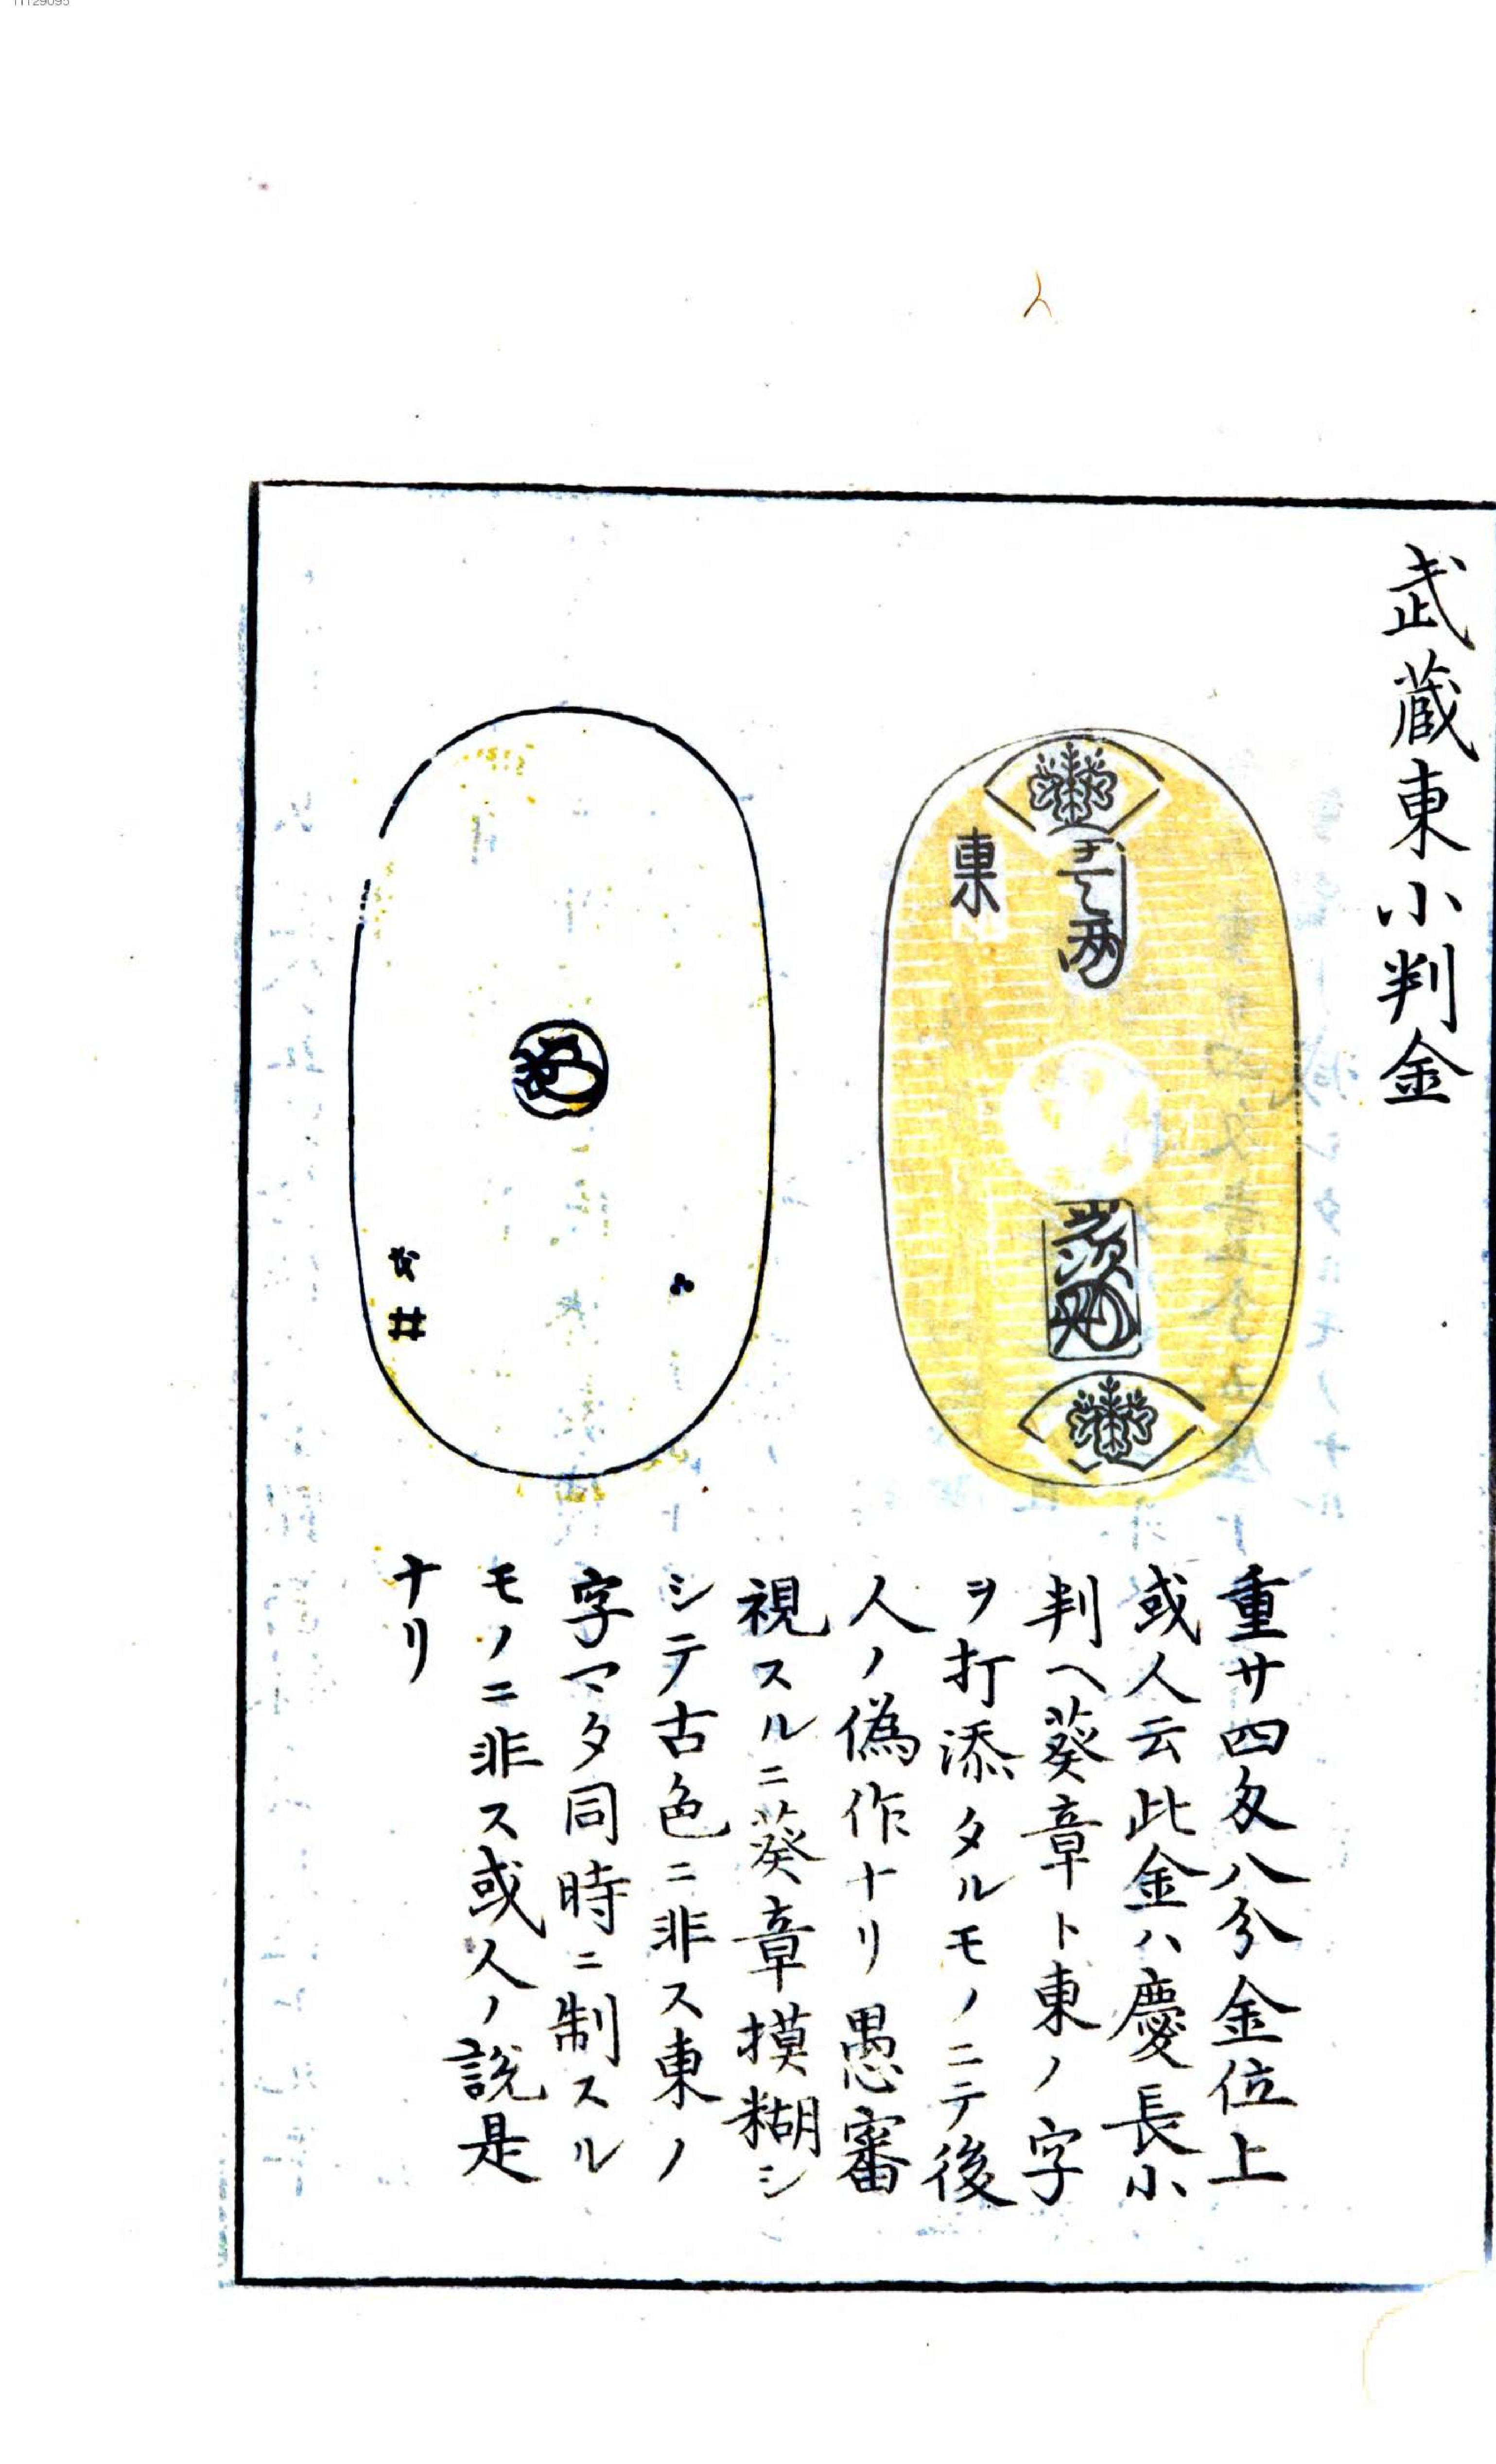 武蔵東小判金
東
壹両
光次
重サ四匁八分金位上
或人云此金ハ慶長小
判ヘ葵章ト東ノ字
ヲ打添タルモノニテ後
人ノ偽作ナリ愚審
視スルニ葵章摸糊シ
シテ古色ニ非ス東ノ
字マタ同時ニ制スル
モノニ非ス或人ノ說是
ナリ